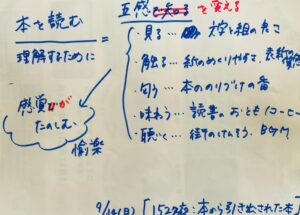 本を読む
理解するために
=
五感を変える
・見る… 文字と組の大きさ
・触る… 紙のめくりやすさ、表紙の質感
・匂う… 本ののりづけの香
・味わう… 読書のおとも(コーヒー
・聴く… 街のけんそう、BGM
感覚が
たのしむ
愉楽
9/14(日)「1523夜:本から引き出された本」